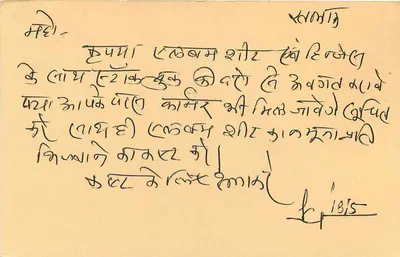 रतलाम
महो-
कृपया एलबम शीट एवं हिन्जेस
के साथ स्टॉक बुक की दरों से अवगत करावें
क्या आपके पास कार्नर भी मिल जावेंगे सूचित
करें साथ ही एलबम शीट का नमूना प्रति
भिजवाने का कष्ट करें।
कष्ट के लिए क्षमा करें
18/5